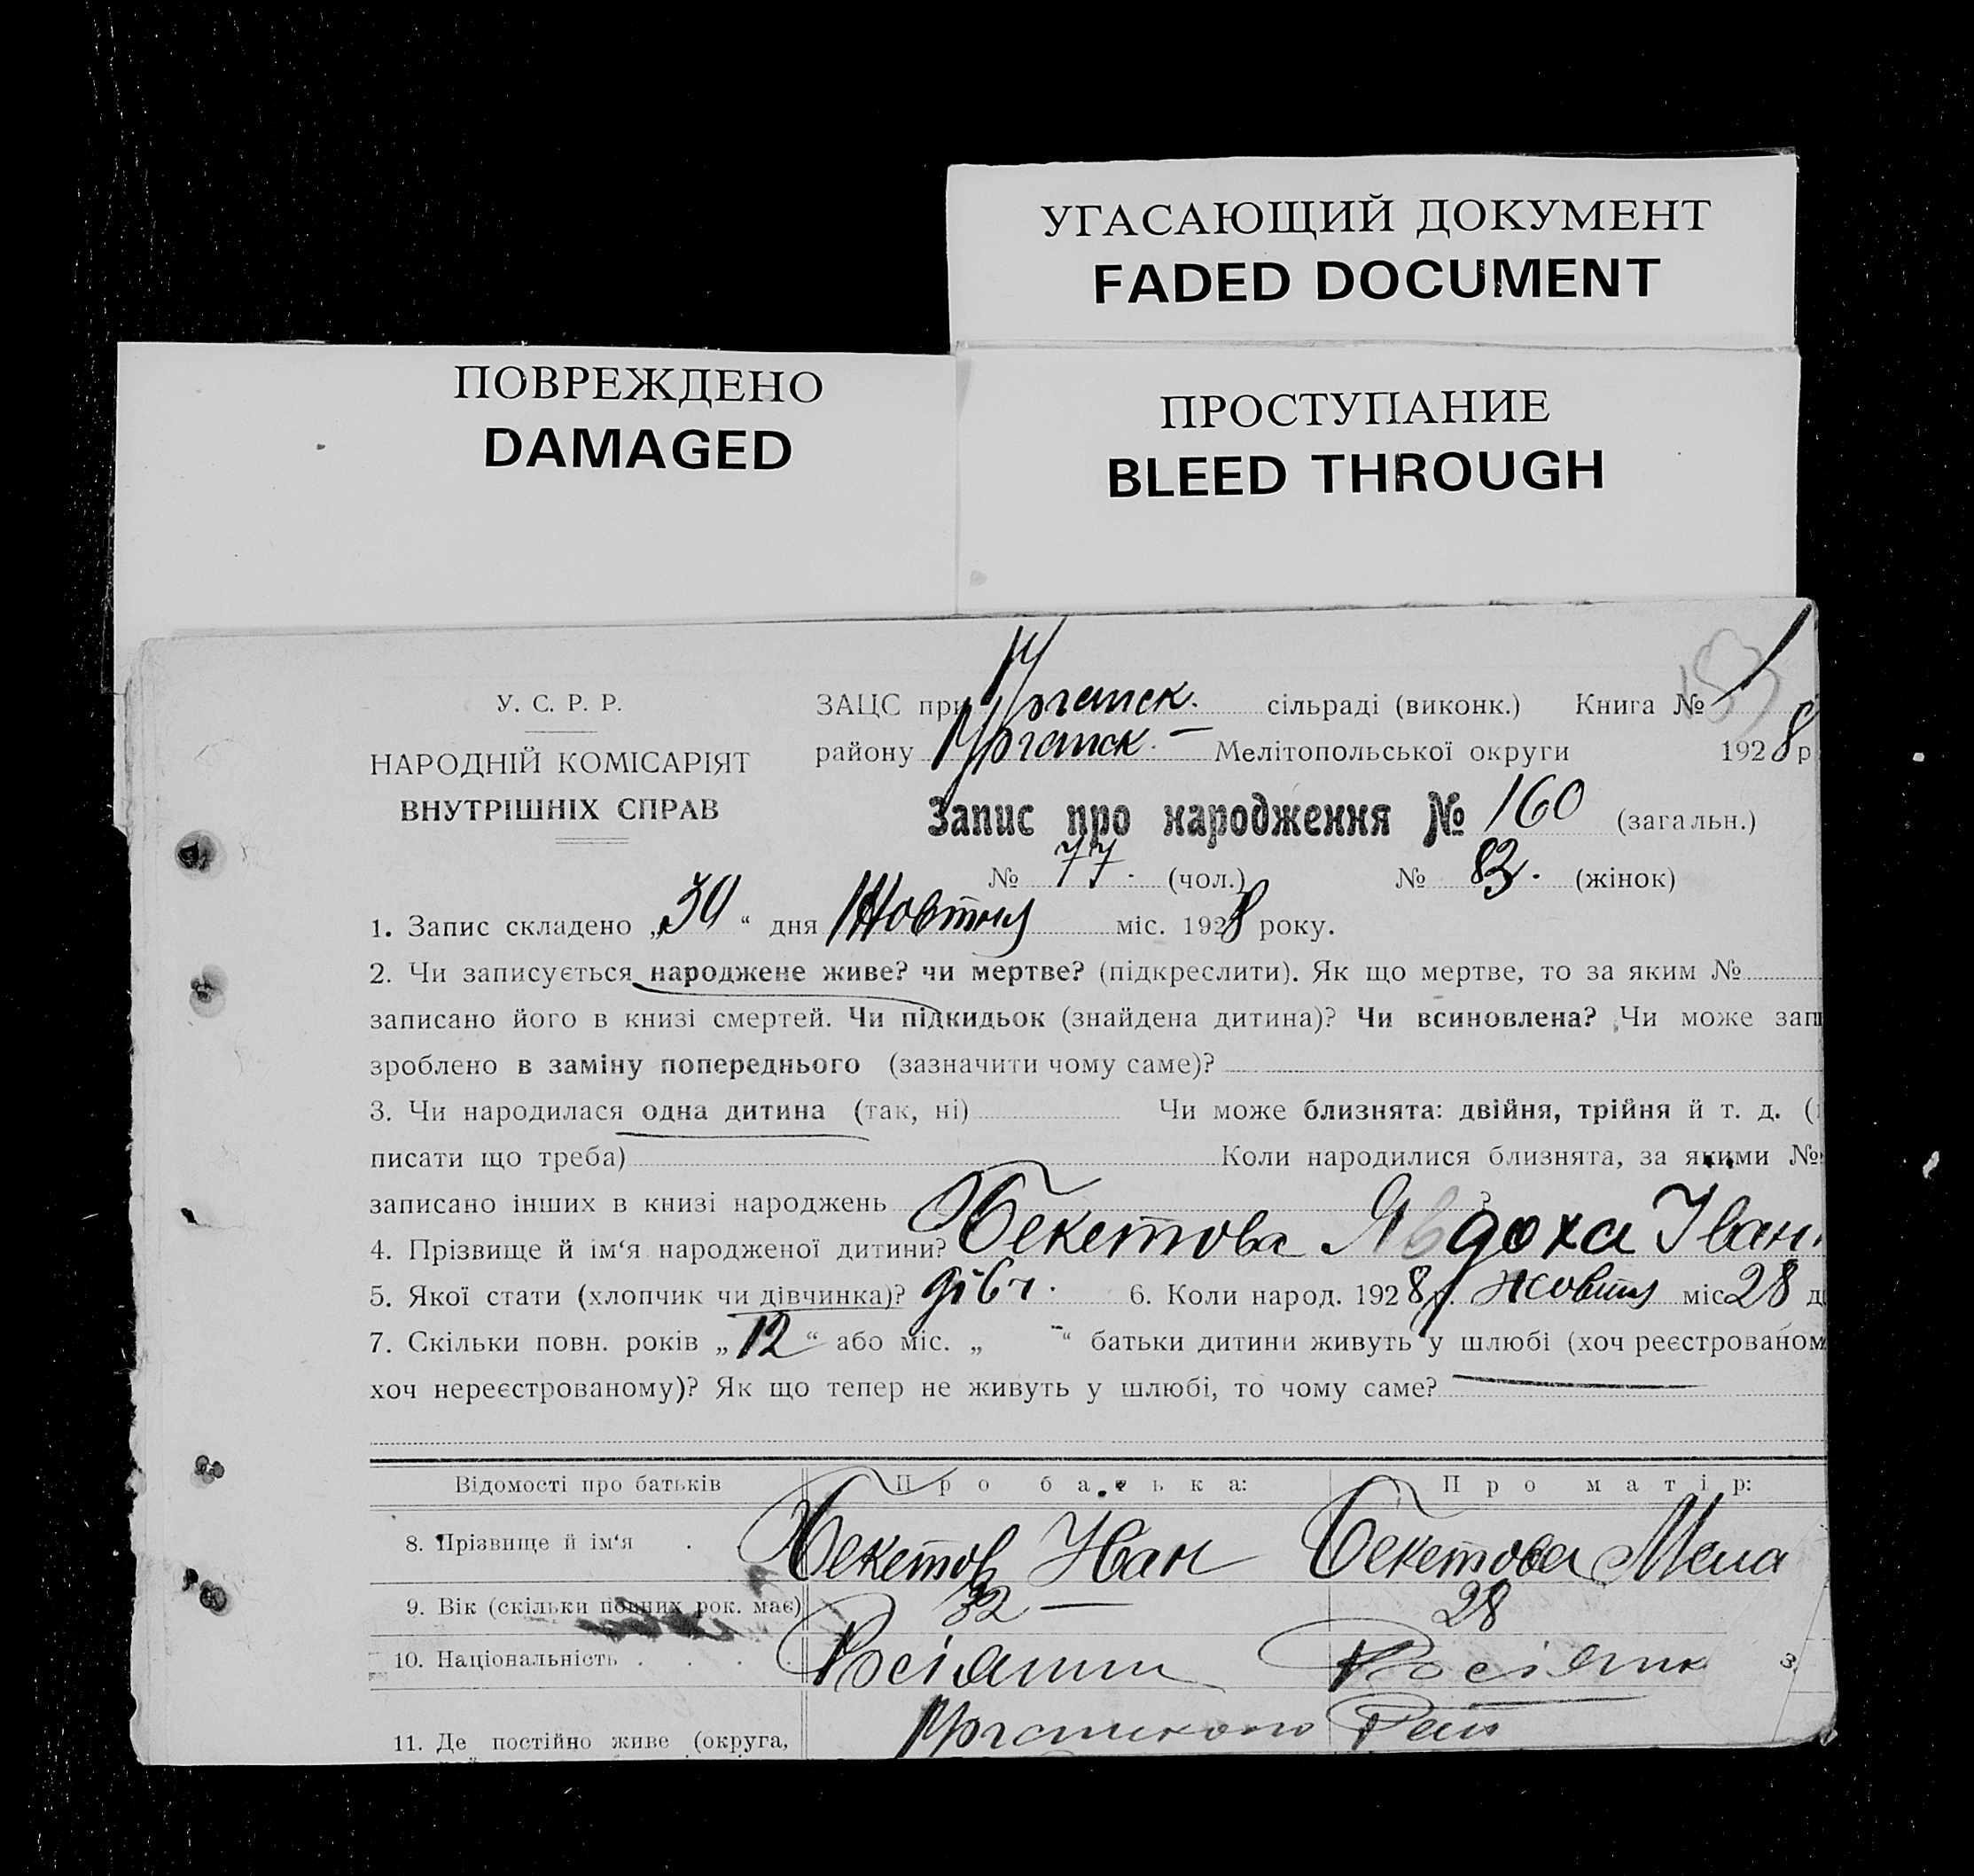 УГАСАЮЩИЙ ДОКУМЕНТ
FADED DOCUMENT
ПОВРЕЖДЕНО
DAMAGED
ПРОСТУПАНИЕ
BLEED THROUGH
У. С. Р. Р.
НАРОДНІЙ КОМІСАРІЯТ
ВНУТРІШНІХ СПРАВ
ЗАЦС при сільраді (виконк.) Книга № 1
району Мелітопольської округи 1928 р
Запис про народження № 160 (загальн.)
№ 77. (чол.) № 83. (жінок)
1. Запис складено „30“ дня Жовтня міс. 1928 року.
2. Чи записується народжене живе? чи мертве? (підкреслити). Як що мертве, то за яким №
записано його в книзі смертей. Чи підкидьок (знайдена дитина)? Чи всиновлена? Чи може зап
зроблено в заміну попереднього (зазначити чому саме)?
3. Чи народилася одна дитина (так, ні) Чи може близнята: двійня, трійня й т. д. (
писати що треба) Коли народилися близнята, за якими №
записано інших в книзі народжень ?
4. Прізвище й ім‘я народженої дитини? Бекетова Явдоха Іван
5. Якої стати (хлопчик чи дівчинка)? дівч. 6. Коли народ. 1928 р. жовтня міс 28 д
7. Скільки повн. років „12“ або міс. „ “ батьки дитини живуть у шлюбі (хоч реєстрованом
хоч нереєстрованому)? Як що тепер не живуть у шлюбі, то чому саме?
Відомості про батьків Про батька: Про матір:
8. Прізвище й ім‘я . Бекетов Иван Бекетова
9. Вік (скільки повних рок. має) 32 — 28
10. Національність . . . . Росіянин Росіянк
11. Де постійно живе (округа,